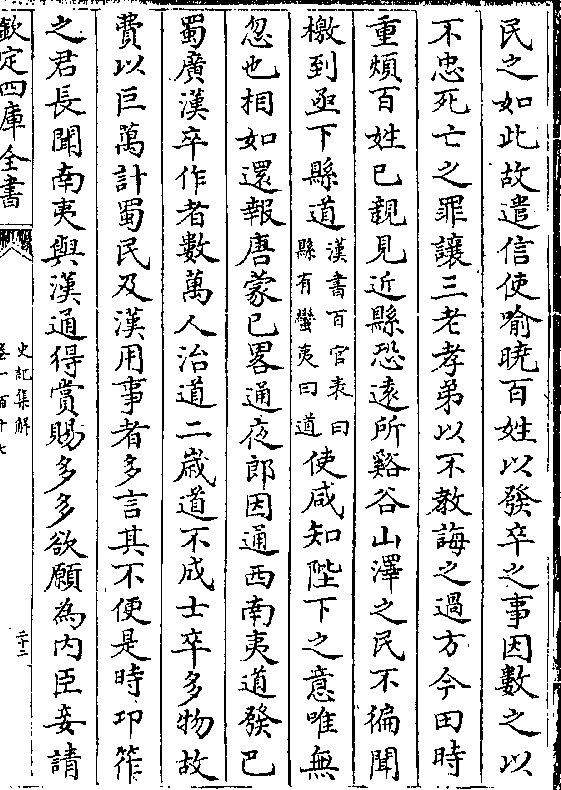 民之如此故遣信使喻曉百姓以發卒之事因數之以
不忠死亡之罪讓三老孝弟以不教誨之過方今田時
重煩百姓已親見近縣恐遠所谿谷山澤之民不徧聞
檄到亟下縣道漢書百官表曰縣有蠻夷曰道使咸知陛下之意唯無
忽也相如還報唐蒙已畧通夜郎因通西南夷道發巴
蜀廣漢卒作者數萬人治道二嵗道不成士卒多物故
費以巨萬計蜀民及漢用事者多言其不便是時邛筰
之君長聞南夷與漢通得賞賜多多欲願為内臣妾請
欽定四庫全書
史記集解
卷一百十七
二十二